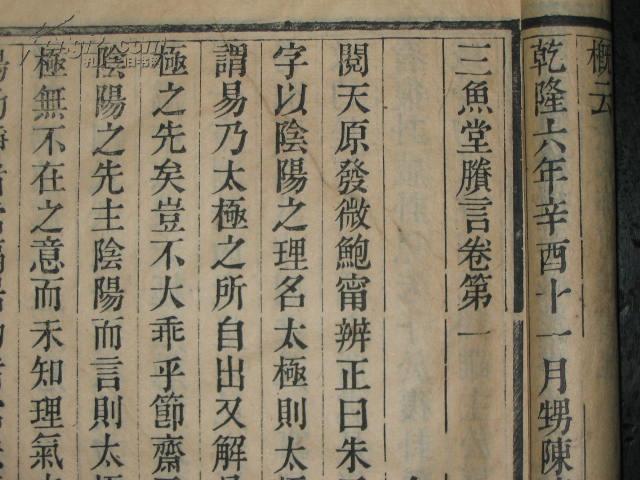 概云
乾隆六年辛酉十一月甥陳
三魚堂賸言卷第一
閱天原發微鮑甯辨正曰朱
字以陰陽之理名太極則太
謂易乃太極之所自出又解
極之先矣豈不大乖乎節齋
陰陽之先主陰陽而言則太
極無不在之意而未知理氣